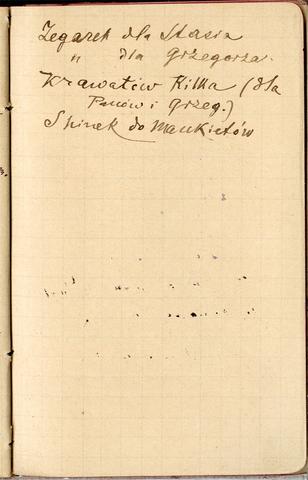 Zegarek dla Stasia
" dla Grzegorza.
Krawatów Kilka (dla
Panów i Grzeg.)
Spinek do Mankietów